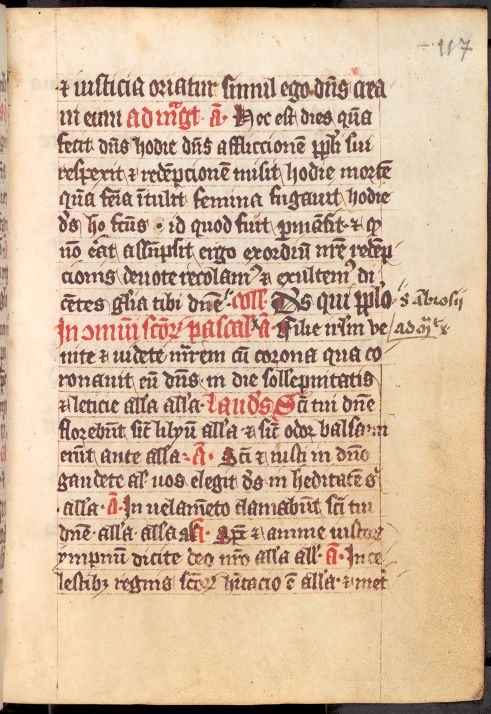 117
⁊ iusticia oriatur simul ego dn̄s crea
ui eum ad mͣgt a̅· Hoc est dies quā
fecit dn̄s hodie dn̄s affliccionē ppl̄i sui
respexit ⁊ redēpcionem misit hodie mortē
quā fēia ītulit femina fugauit hodie
ds̄ hō fc̄us · id quod fuit ꝑmāsit ⁊ qͦ
nō erat assūpsit ergo exordiū nr̄e redēp
cionis deuote recolamꝰ ⁊ exultemꝰ di
cētes gl̄ia tibi dnē· coll̄ Ds̄ qui ppl̄o
s ābrosii
In om̄iū sc̄oꝝ pascalꝰ a̅ Filie irl̄m ve
ad oῑ
nite ⁊ videte mr̄em cū corona qua co
ronauit eū dn̄s in die sollēpnitatis
⁊ leticie all̄a all̄a Laud̄s Sc̄i tui dn̄e
florebūt sic̄ lilyū all̄a ⁊ sic̄ odor balsami
erūt ante all̄a · a̅ · Sc̄i ⁊ iusti in dn̄o
gaudete al̄ꝰ uos elegit ds̄ in heditatē s
· all̄a · a̅ · In uelamēto clamabūt sc̄i tui
dn̄e · all̄a · all̄a a̅ · Sp̄c ⁊ anime iustoꝝ
ympnū dicite deo nr̄o all̄a all̄ · a̅ · In ce
lestibꝫ regnis sc̄oꝝ hītacio ē all̄a · ⁊ inet